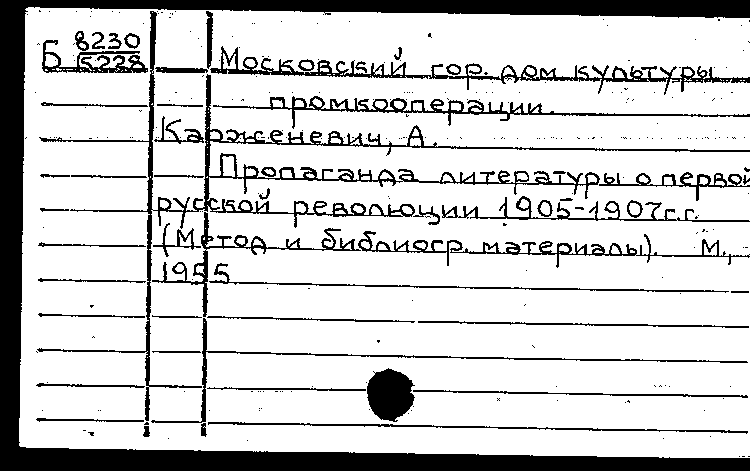 Б 8230/5228
Московский гор. дом культуры
промкооперации.
Карженевич, А.
Пропаганда литературы о первой
русской революции 1905-1907г.г.
(Метод и библиогр. материалы). М.,
1955